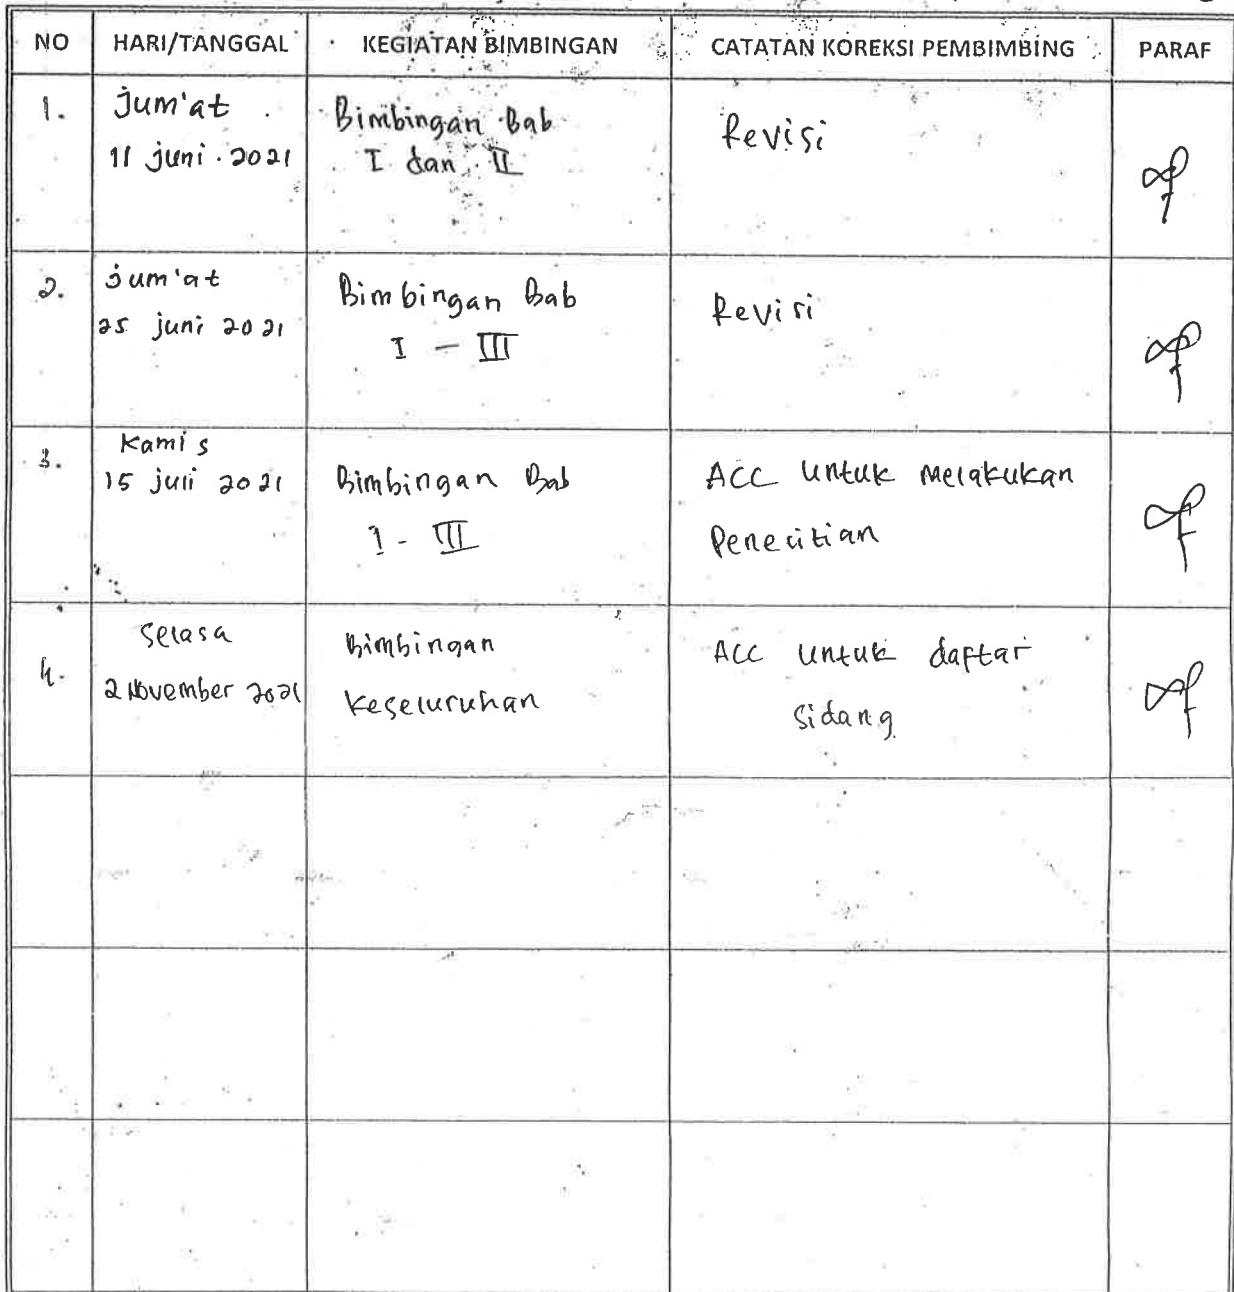 NO HARI/TANGGAL KEGIATAN BIMBINGAN CATATAN KOREKSI PEMBIMBING PARAF
1. Jum'at
11 juni 2021
Bimbingan Bab
I dan II
Revisi
2. Jum'at
25 juni 2021
Bimbingan Bab
I - III
Revisi
3. Kamis
15 juli 2021
Bimbingan Bab
I - III
ACC untuk melakukan
Penelitian
4. Selasa
2 November 2021
Bimbingan
Keseluruhan
ACC untuk daftar
Sidang